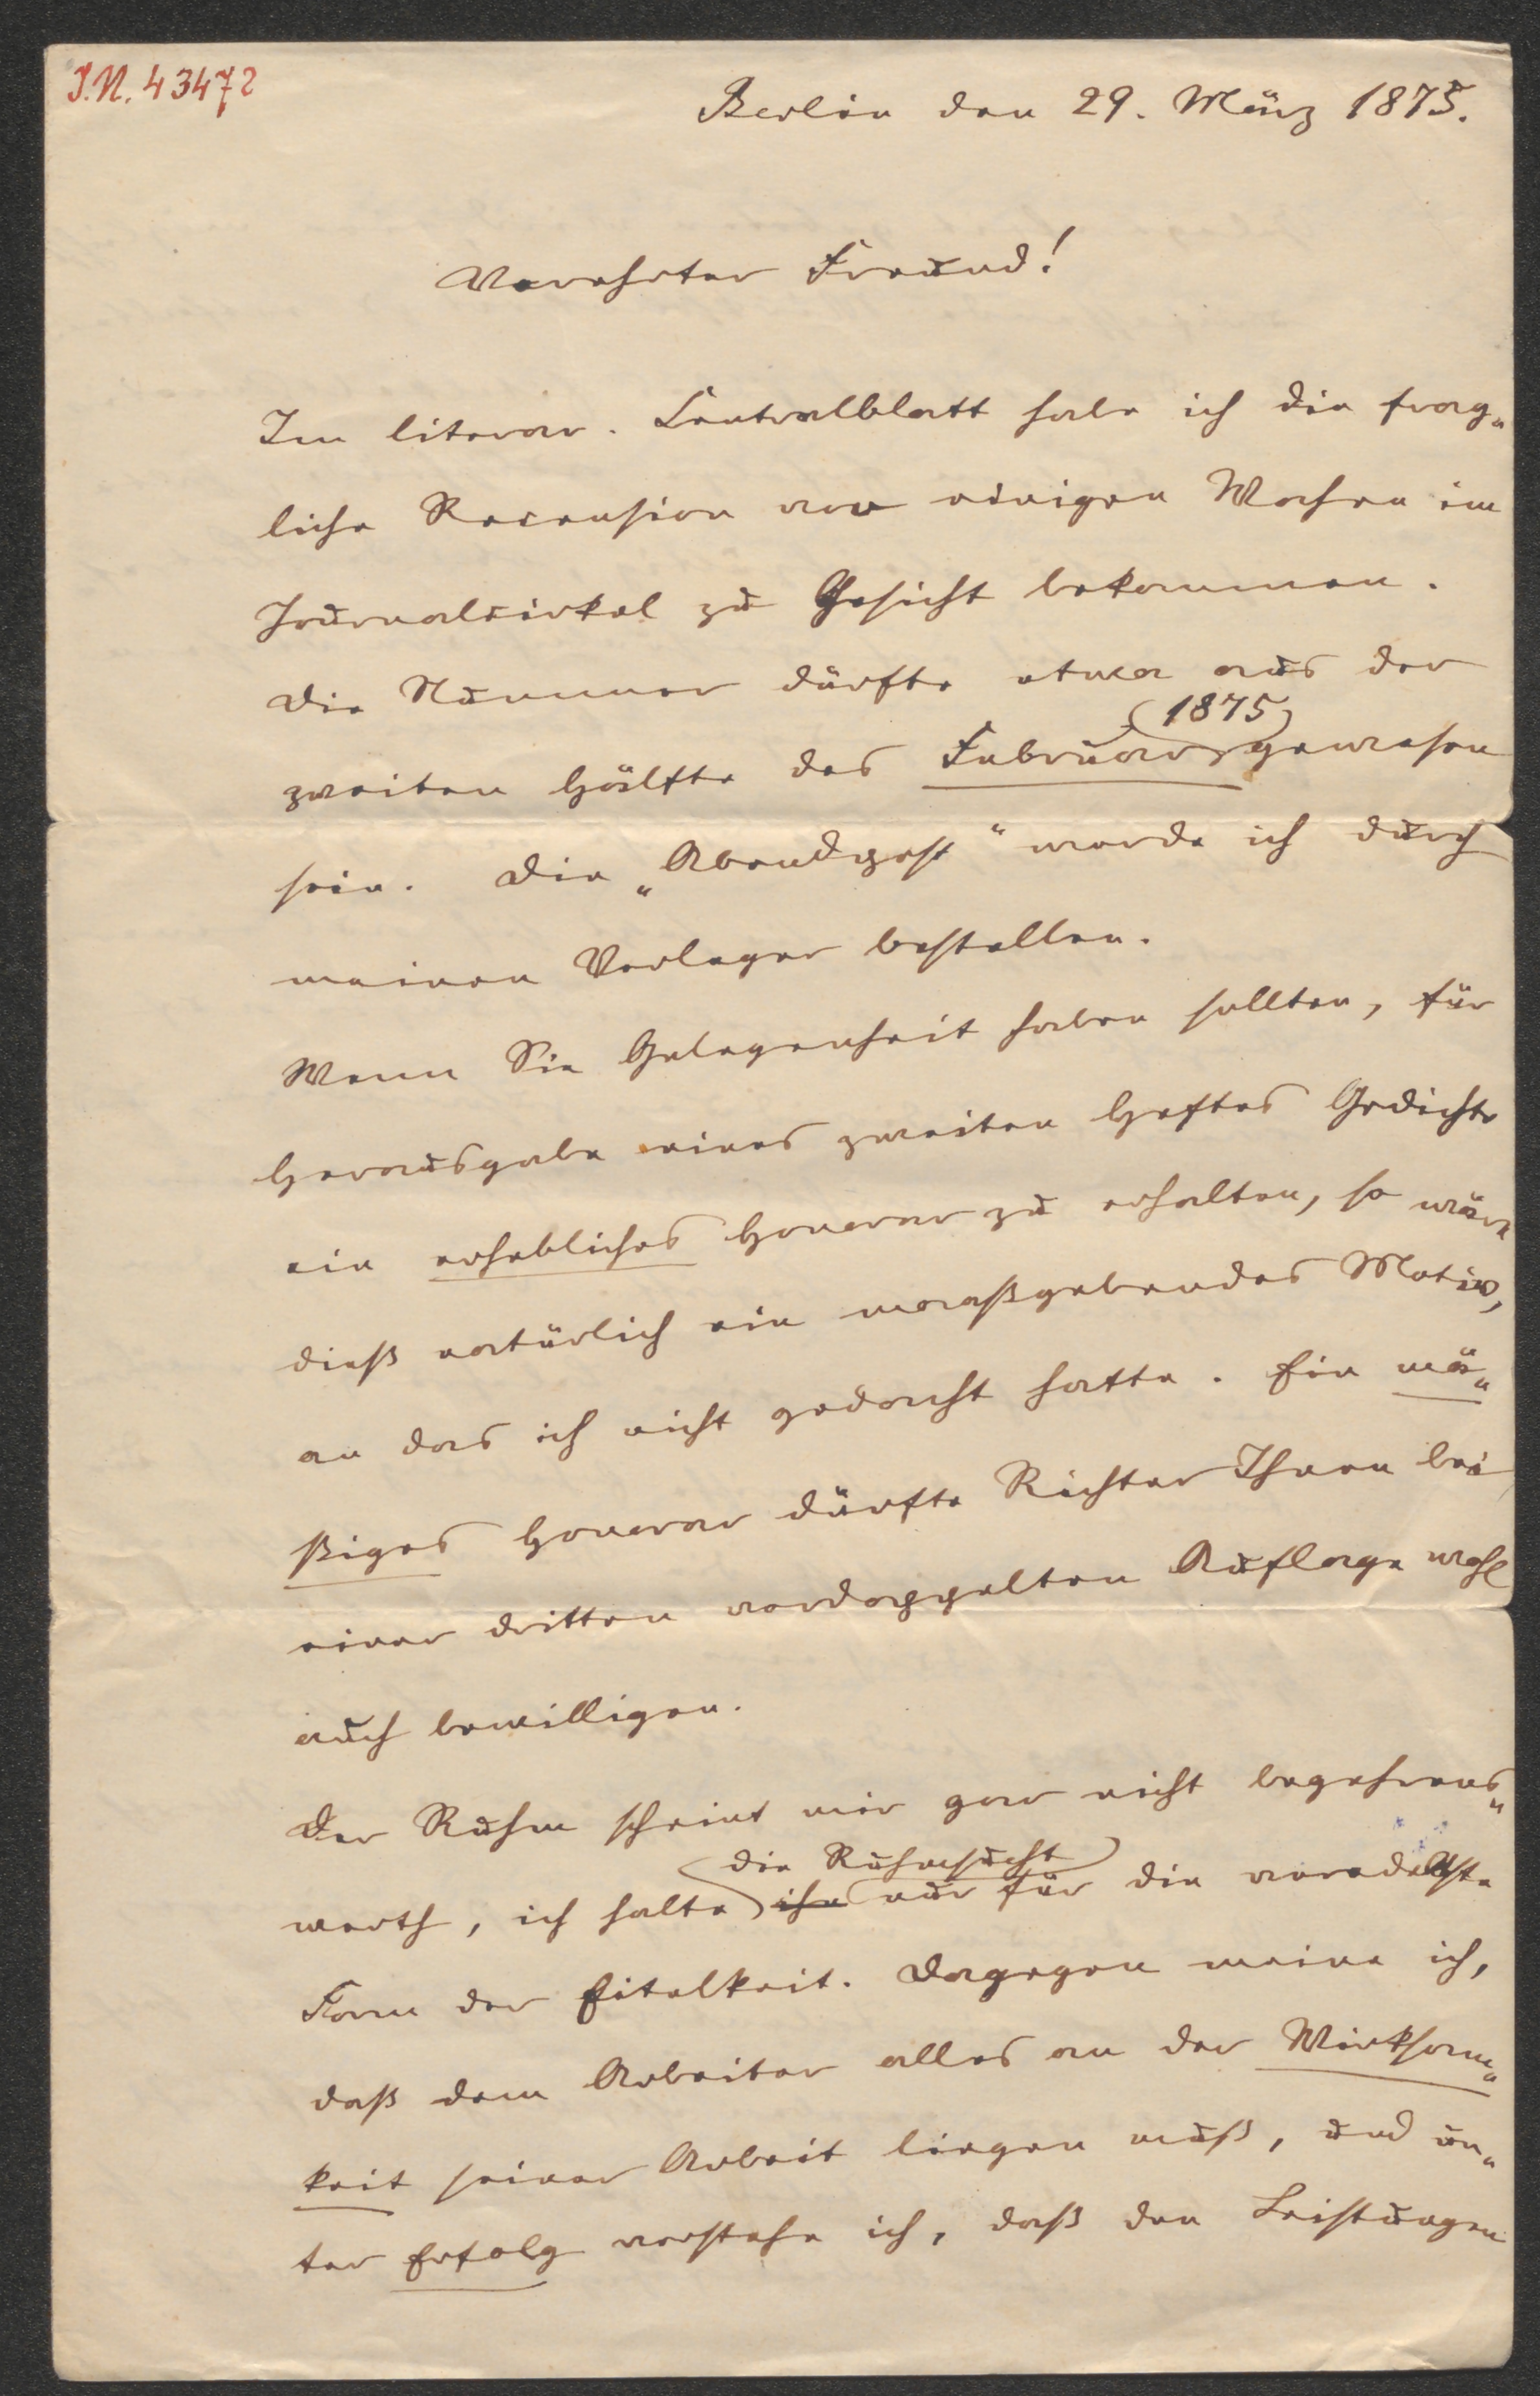 I.N. 43472
Berlin den 29. März 1875.
Verehrter Freund!
Im literar. Centralblatt habe ich die frag„
liche Recension vor einigen Wochen im
Journalcirkel zu Gesicht bekommen.
Die Nummer dürfte etwa aus der
(1875)
zweiten Hälfte des Februar gewesen
sein. Die „Abendpost“ werde ich durch
meinen Verleger bestellen.
Wenn Sie Gelegenheit haben sollten, für
Herausgabe eines zweiten Heftes Gedichte
ein erhebliches Honorar zu erhalten, so wäre
dieß natürlich ein maaßgebendes Motiv,
an das ich nicht gedacht hatte. Ein mä„
ßiges Honorar dürfte Richter Ihnen bei
einer dritten verdoppelten Auflage wohl
auch bewilligen.
Der Ruhm scheint mir gar nicht begehrens„
die Ruhmsucht
werth, ich halte ihn nur für die veredeltste
Form der Eitelkeit. Dagegen meine ich,
daß dem Arbeiter alles an der Wirksam„
keit seiner Arbeit liegen muß, und un„
ter Erfolg verstehe ich, daß den Leistungen